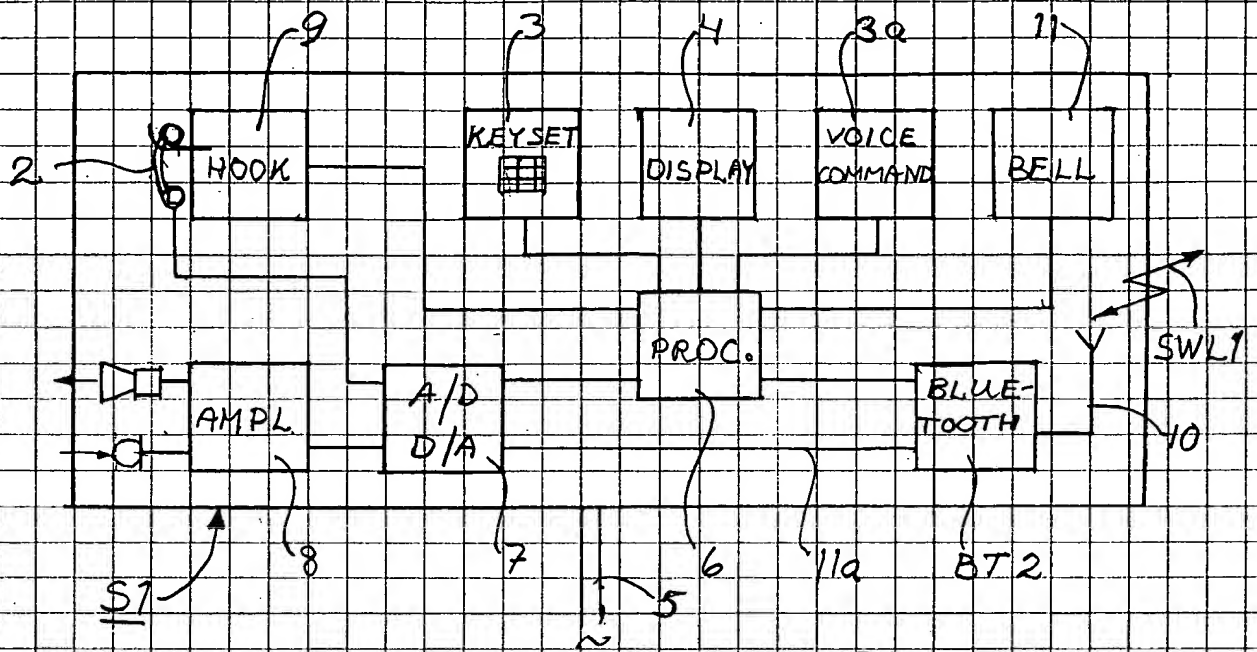 9
3
4
3a
11
2
HOOK
KEYSET
DISPLAY
VOICE
COMMAND
BELL
PROC.
SWL1
AMPL.
A/D
D/A
BLUE-
TOOTH
10
S1
8
7
5
6
11a
BT2
~